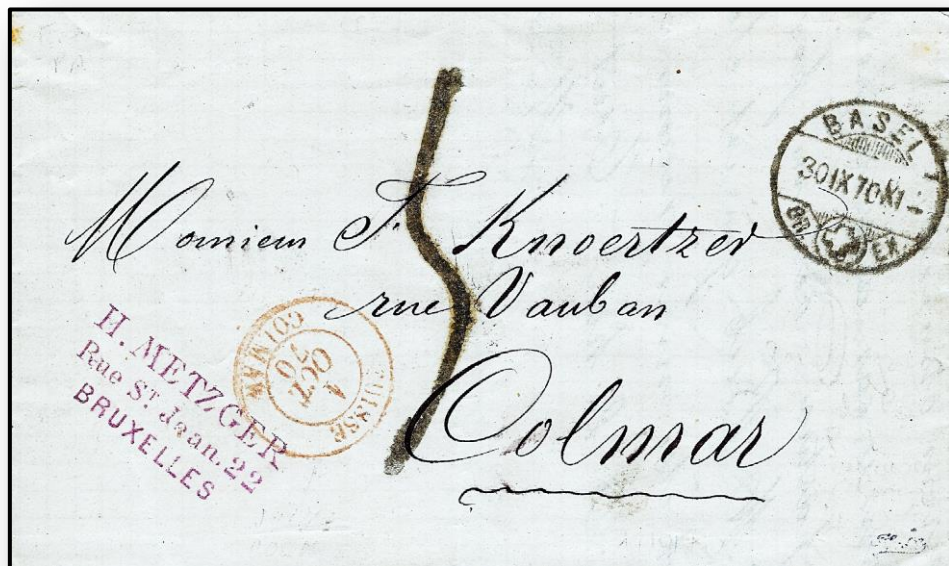 BASEL 1
30 IX 70 XI
BR. EX.
Monsieur J. Knoertzer
rue Vauban
Colmar
H. METZGER
Rue St Jean. 22
BRUXELLES
SUISSE COLMAR
1
OCT.
70